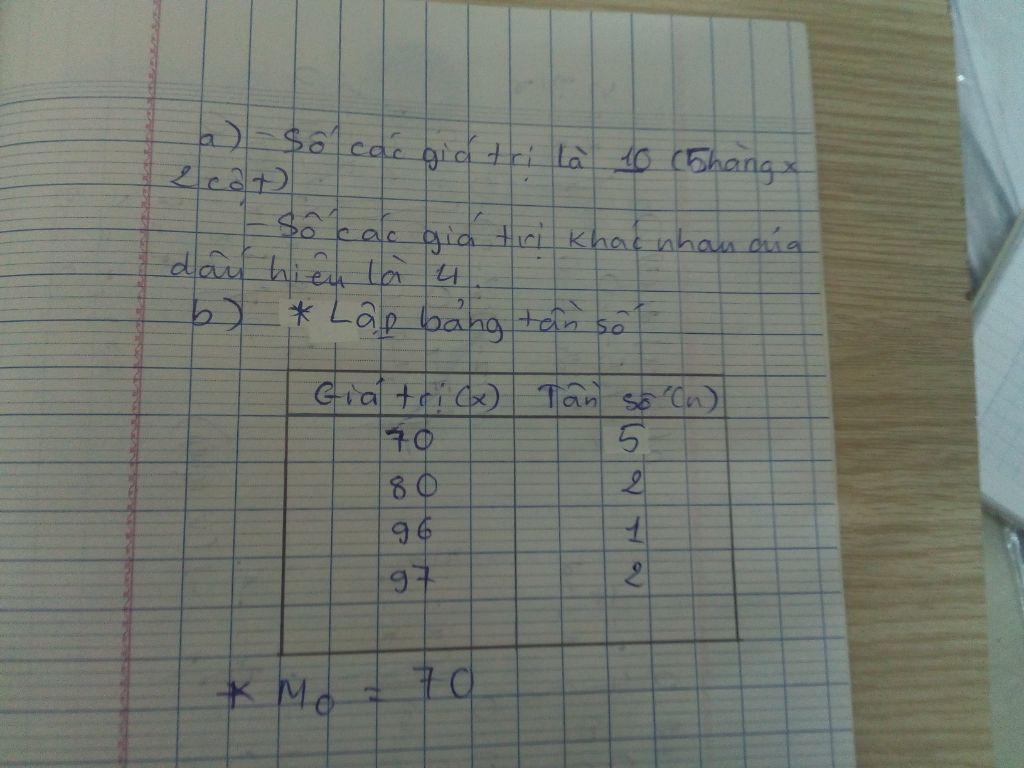 a) - Số các giá trị là 10 (5 hàng x
2 cột)
- Số các giá trị khác nhau của
dấu hiệu là 4.
b) * Lập bảng tần số
Giá trị (x) Tần số (n)
70 5
80 2
96 1
97 2
* M₀ = 70